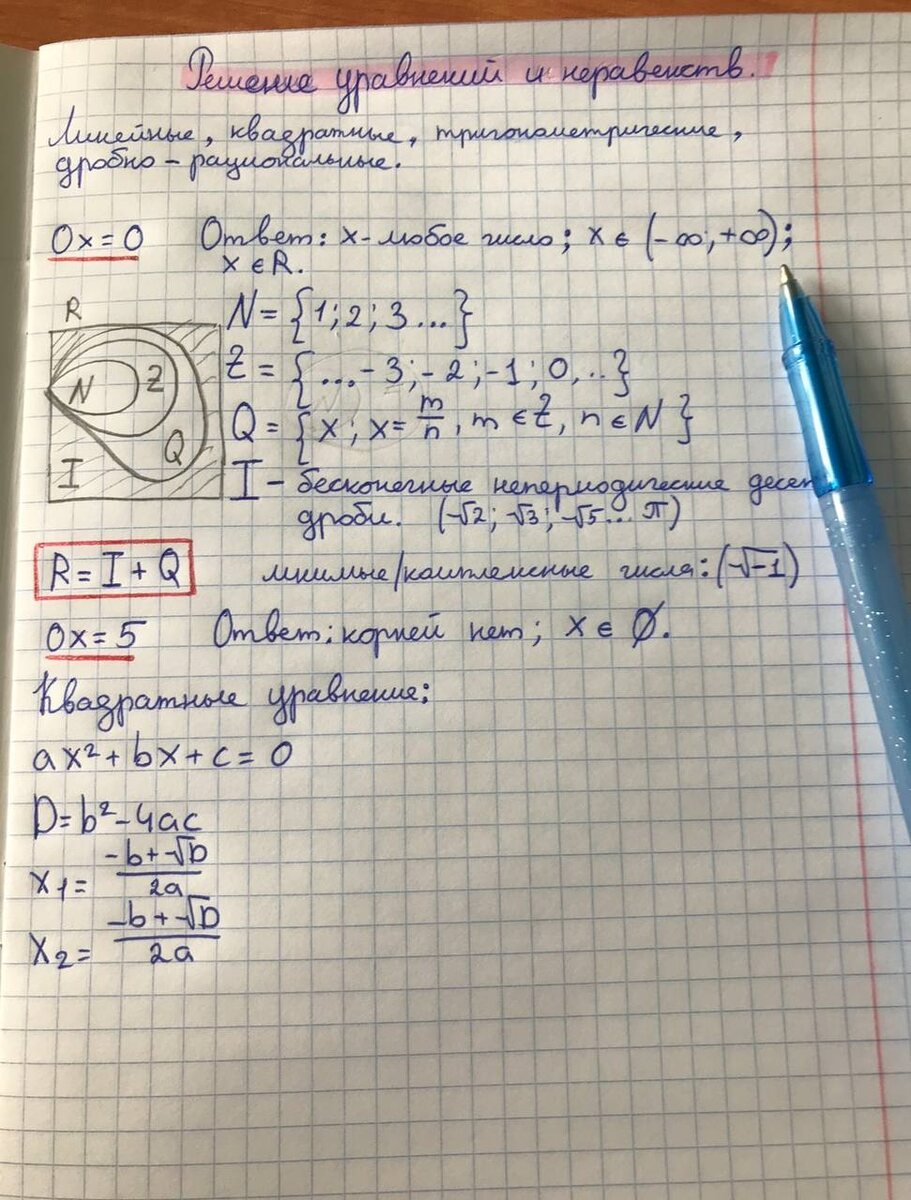 Решение уравнений и неравенств.
Линейные, квадратные, тригонометрические,
дробно - рациональные.
0x = 0 Ответ: x - любое число; x ∈ (-∞; +∞);
x ∈ R.
R
N = {1; 2; 3 ...}
N Z Z = {... - 3; - 2; -1; 0, ..}
Q Q = {x; x = m/n, m ∈ Z, n ∈ N}
I I - бесконечные непериодические десят
дроби. (√2; √3; √5 ... π)
R = I + Q мнимые/комплексные числа: (√-1)
0x = 5 Ответ: корней нет; x ∈ ∅.
Квадратные уравнение:
ax² + bx + c = 0
D = b² - 4ac
x₁ = (-b + √D)/2a
x₂ = (-b + √D)/2a